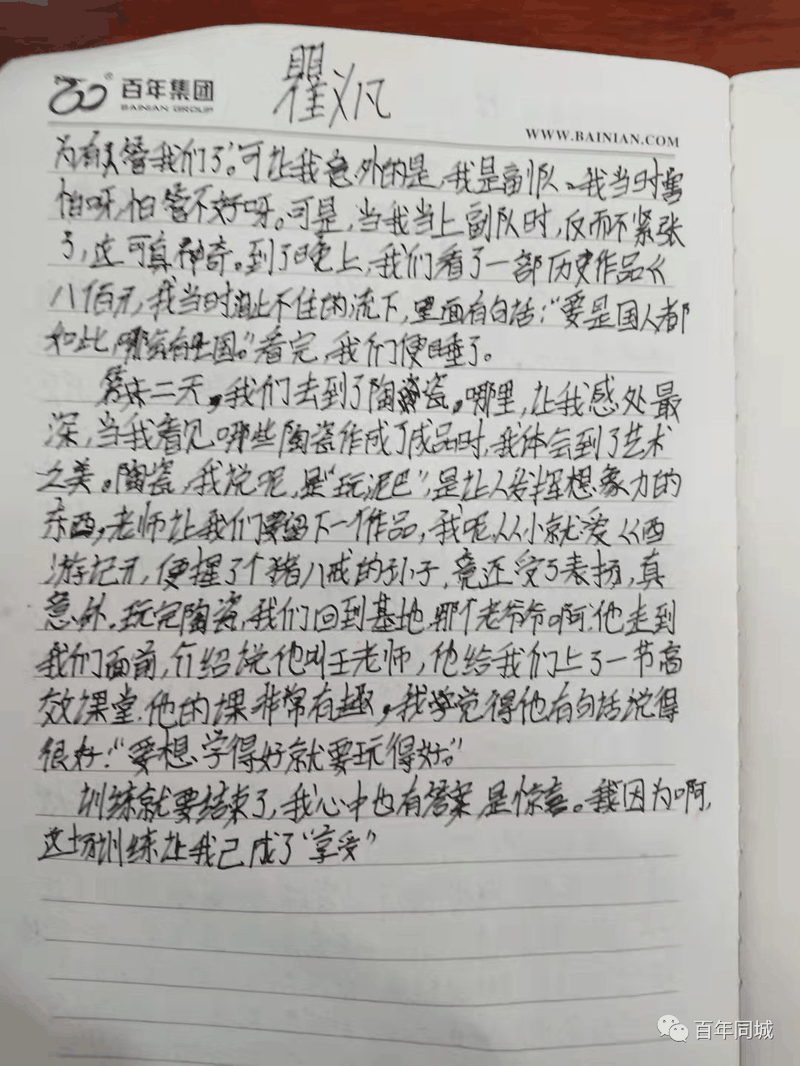 瞿义凡
百年集团
BAINIAN GROUP
WWW.BAINIAN.COM
为有人管我们了。可让我意外的是,我是副队。我当时害
怕呀,怕管不好呀。可是,当我当上副队时,反而不紧张
了,这可真神奇。到了晚上,我们看了一部历史作品《
八佰》,我当时泪止不住的流下,里面有句话:“要是国人都
如此,哪 有 国。”看完,我们便睡了。
第二天,我们去到了陶瓷。哪里,让我感处最
深,当我看见哪些陶瓷作成了成品时,我体会到了艺术
之美。陶瓷,我说呢,是“玩泥巴”,是让人发挥想象力的
东西,老师让我们要留下一个作品,我呢从小就爱《西
游记》,便握了个猪八戒的 子,竟还受了表扬,真
意外。玩完陶瓷,我们回到基地,那个老爷爷啊,他走到
我们面前,介绍说他叫王老师,他给我们上了一节高
效课堂,他的课非常有趣,我学觉得他有句话说得
很好:“要想学得好就要玩得好。”
训练就要结束了,我心中也有答案,是惊喜。我因为啊,
这场训练让我已成了“享受”
百年同城